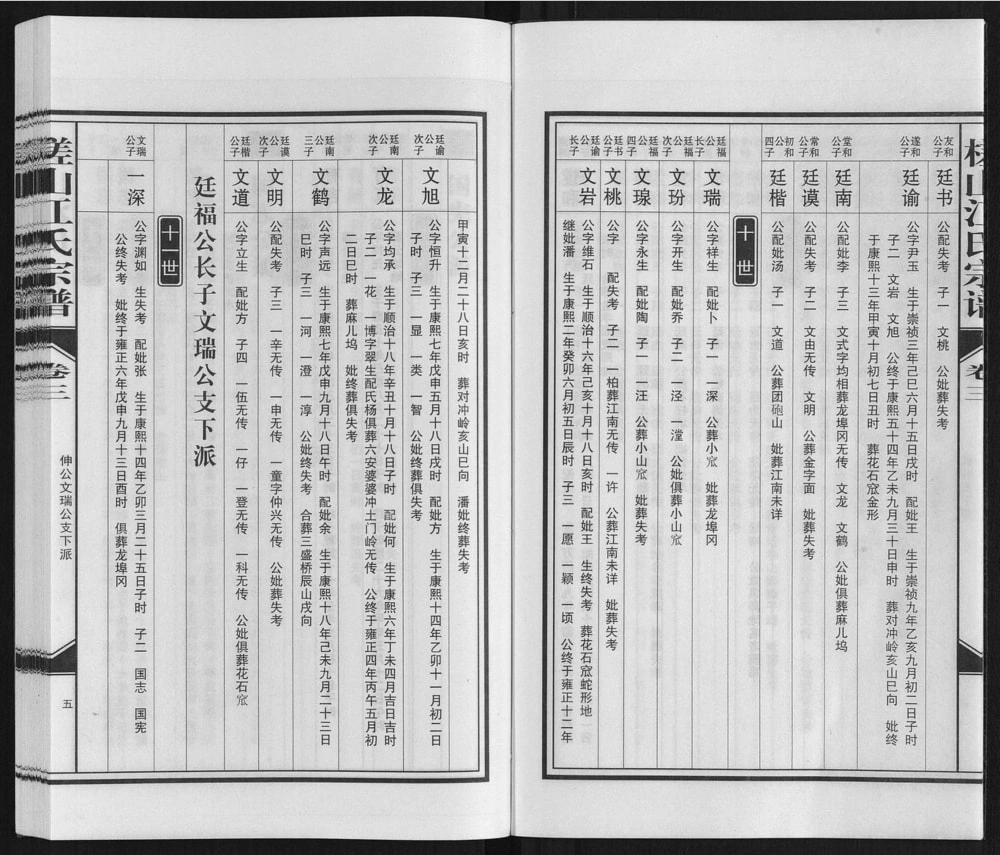 友和公子
廷书
公配失考 子一 文桃 公妣葬失考
遂和公子
廷谕
公字尹玉 生于崇祯三年己巳六月十五日戌时 配妣王 生于崇祯九年乙亥九月初二日子时
子二 文岩 文旭 公终于康熙五十四年乙未九月三十日申时 葬对冲岭亥山巳向 妣终
于康熙十三年甲寅十月初七日丑时 葬花石窊金形
堂和公子
廷南
公配妣李 子三 文式字均相葬龙埠冈无传 文龙 文鹤 公妣俱葬麻儿坞
常和公子
廷谟
公配失考 子二 文由无传 文明 公葬金字面 妣葬失考
初和公四子
廷楷
公配妣汤 子一 文道 公葬团砲山 妣葬江南未详
十世
廷福公长子
文瑞
公字祥生 配妣卜 子一 一深 公葬小窊 妣葬龙埠冈
廷福公次子
文玢
公字开生 配妣乔 子二 一泾 一漟 公妣俱葬小山窊
廷福公四子
文琭
公字永生 配妣陶 子一 一汪 公葬小山窊 妣葬失考
廷书公子
文桃
公字 配失考 子二 一柏葬江南无传 一许 公葬江南未详 妣葬失考
廷谕公长子
文岩
公字维石 生于顺治十六年己亥十月十八日亥时 配妣王 生终失考 葬花石窊蛇形地
继妣潘 生于康熙二年癸卯六月初五日辰时 子三 一愿 一颖 一顷 公终于雍正十二年
甲寅十二月二十八日亥时 葬对冲岭亥山巳向 潘妣终葬失考
廷谕公次子
文旭
公字恒升 生于康熙七年戊申五月十八日戌时 配妣方 生于康熙十四年乙卯十一月初二日
子时 子三 一显 一类 一智 公妣终葬俱失考
廷南公次子
文龙
公字均承 生于顺治十八年辛丑十月十八日子时 配妣何 生于康熙六年丁未四月吉日吉时
子二 一花 一博字翠生配氏杨俱葬六安婆婆冲土门岭无传 公终于雍正四年丙午五月初
二日巳时 葬麻儿坞 妣终葬俱失考
廷南公三子
文鹤
公字声远 生于康熙七年戊申九月十八日午时 配妣余 生于康熙十八年己未九月二十三日
巳时 子三 一河 一澄 一淳 公妣终失考 合葬三盛桥辰山戌向
廷谟公次子
文明
公配失考 子三 一辛无传 一申无传 一童字仲兴无传 公妣葬失考
廷楷公子
文道
公字立生 配妣方 子四 一伍无传 一仔 一登无传 一科无传 公妣俱葬花石窊
廷福公长子文瑞公支下派
十一世
文瑞公子
一深
公字渊如 生失考 配妣张 生于康熙十四年乙卯三月二十五日子时 子二 国志 国宪
公终失考 妣终于雍正六年戊申九月十三日酉时 俱葬龙埠冈
江氏宗谱
卷三
伸公文瑞公支下派
五